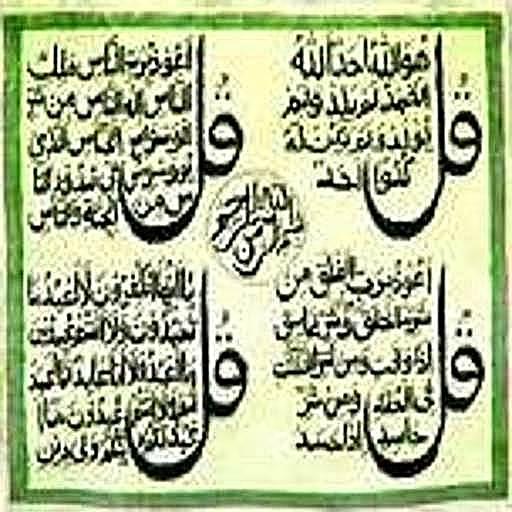 قل هو الله احد الله
الصمد لم يلد ولم
يولد ولم يكن له
كفوا احد
قل اعوذ برب الناس ملك
الناس اله الناس من شر
الوسواس الخناس الذى
يوسوس فى صدور النا
س من الجنة والناس
بسم الله الرحمن الرحيم
قل اعوذ برب الفلق من
شر ما خلق ومن شر غاسق
اذا وقب ومن شر النفثت
فى العقد ومن شر
حاسد اذا حسد
قل يا ايها الكفرون لا اعبد ما
تعبدون ولا انتم عبدون
ما اعبد ولا انا عابد ما عبد
تم ولا انتم عبدون ما ا
عبد لكم دينكم ولى دين